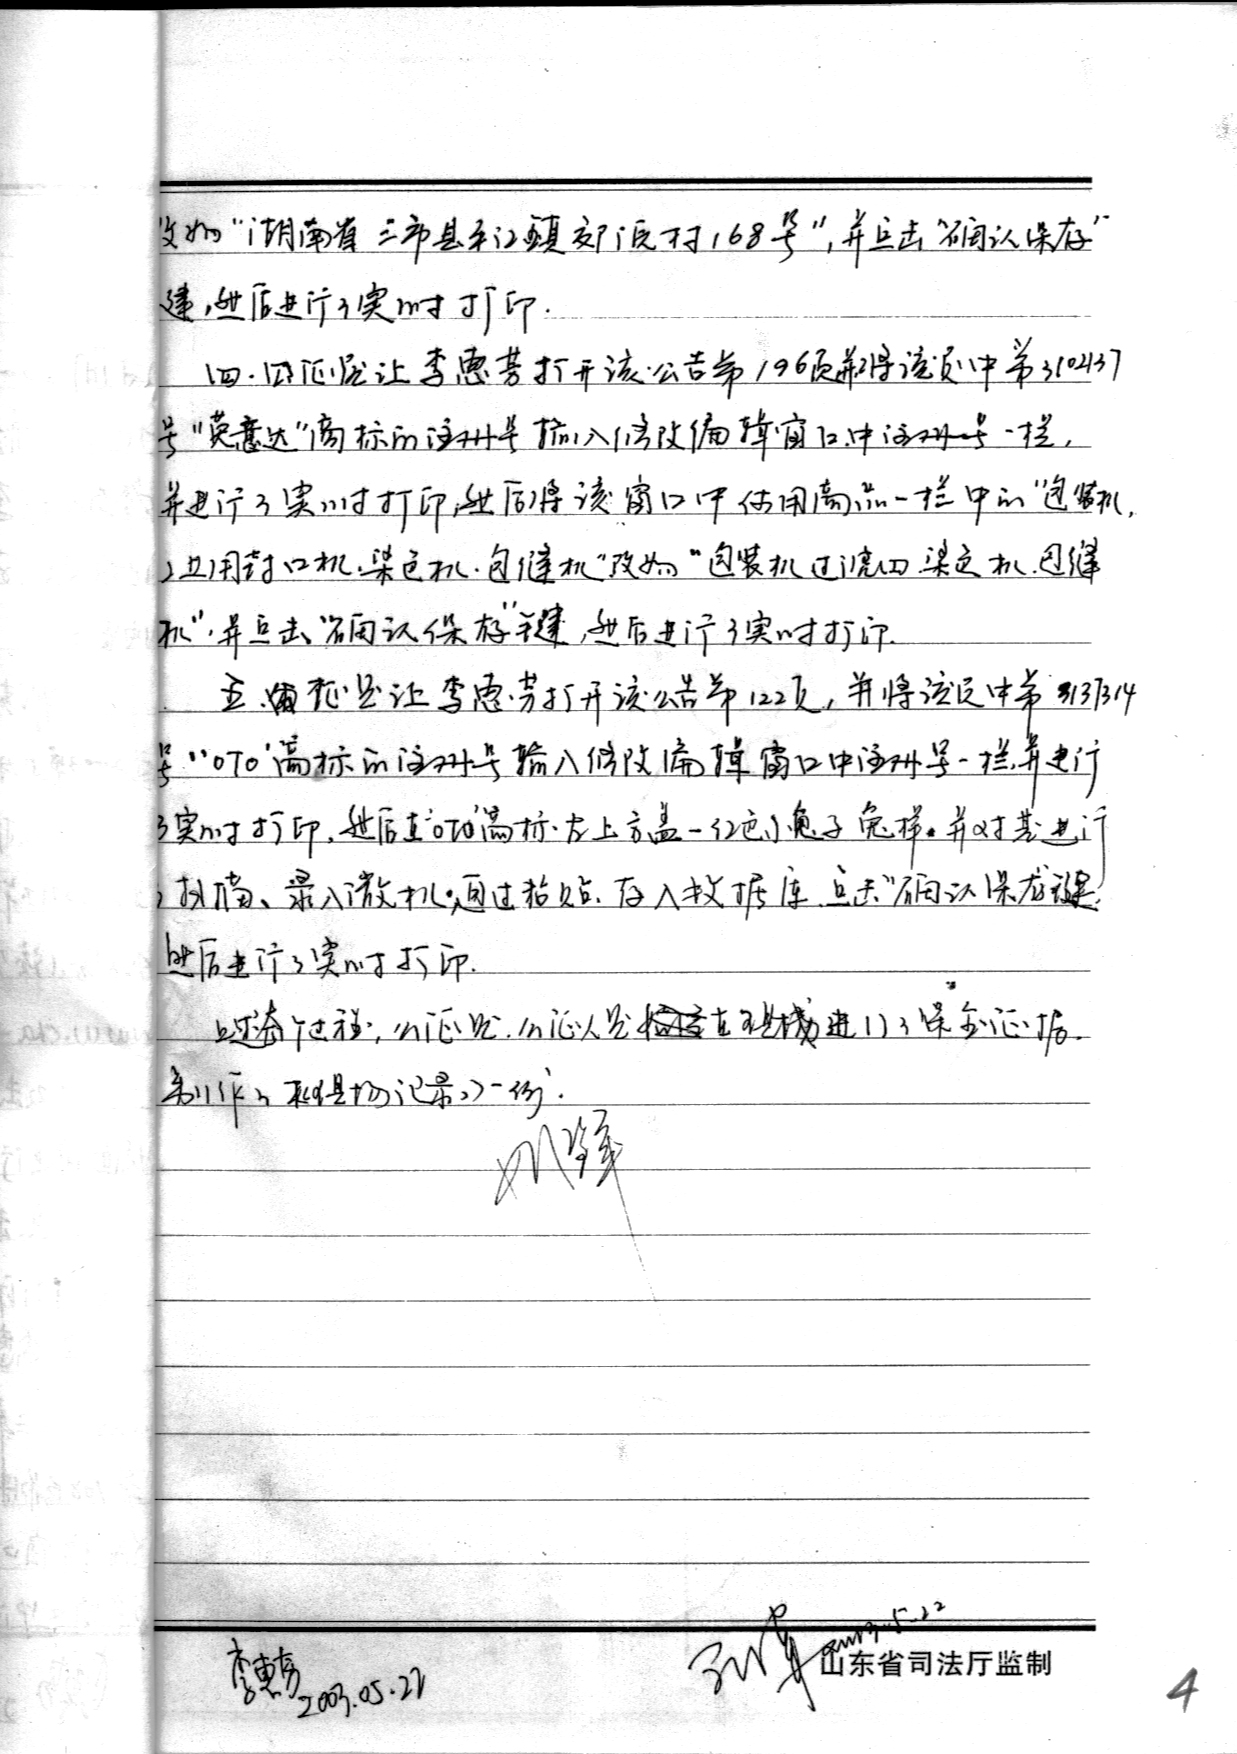 改为“湖南省三市县平江镇郊区村168号”,并点击“确认保存”
键,然后进行了实时打印.
四.公证员让李惠芳打开该公告第196页并将该页中第3102137
号“英意达”商标的注册号输入修改编辑窗口中注册号一栏,
并进行了实时打印,然后将该窗口中使用商品一栏中的“包装机,
工业用封口机.染色机.包缝机”改为“包装机 过滤四 染色机.包缝
机”.并点击“确认保存”键,然后进行了实时打印.
五.公证员让李惠芳打开该公告第122页,并将该页中第3137314
号“OTO”商标的注册号输入修改编辑窗口中注册号一栏,并进行
了实时打印,然后在“OTO”商标左上方盖一红色小兔子图样.并对其进行
了扫描、录入微机,通过粘贴.存入数据库.点击“确认保存”键.
然后进行了实时打印.
整个过程,公证员.公证人员在现场进行了保全证据.
制作了现场记录一份.
李惠芳
2003.05.22
2003.5.22
山东省司法厅监制
4